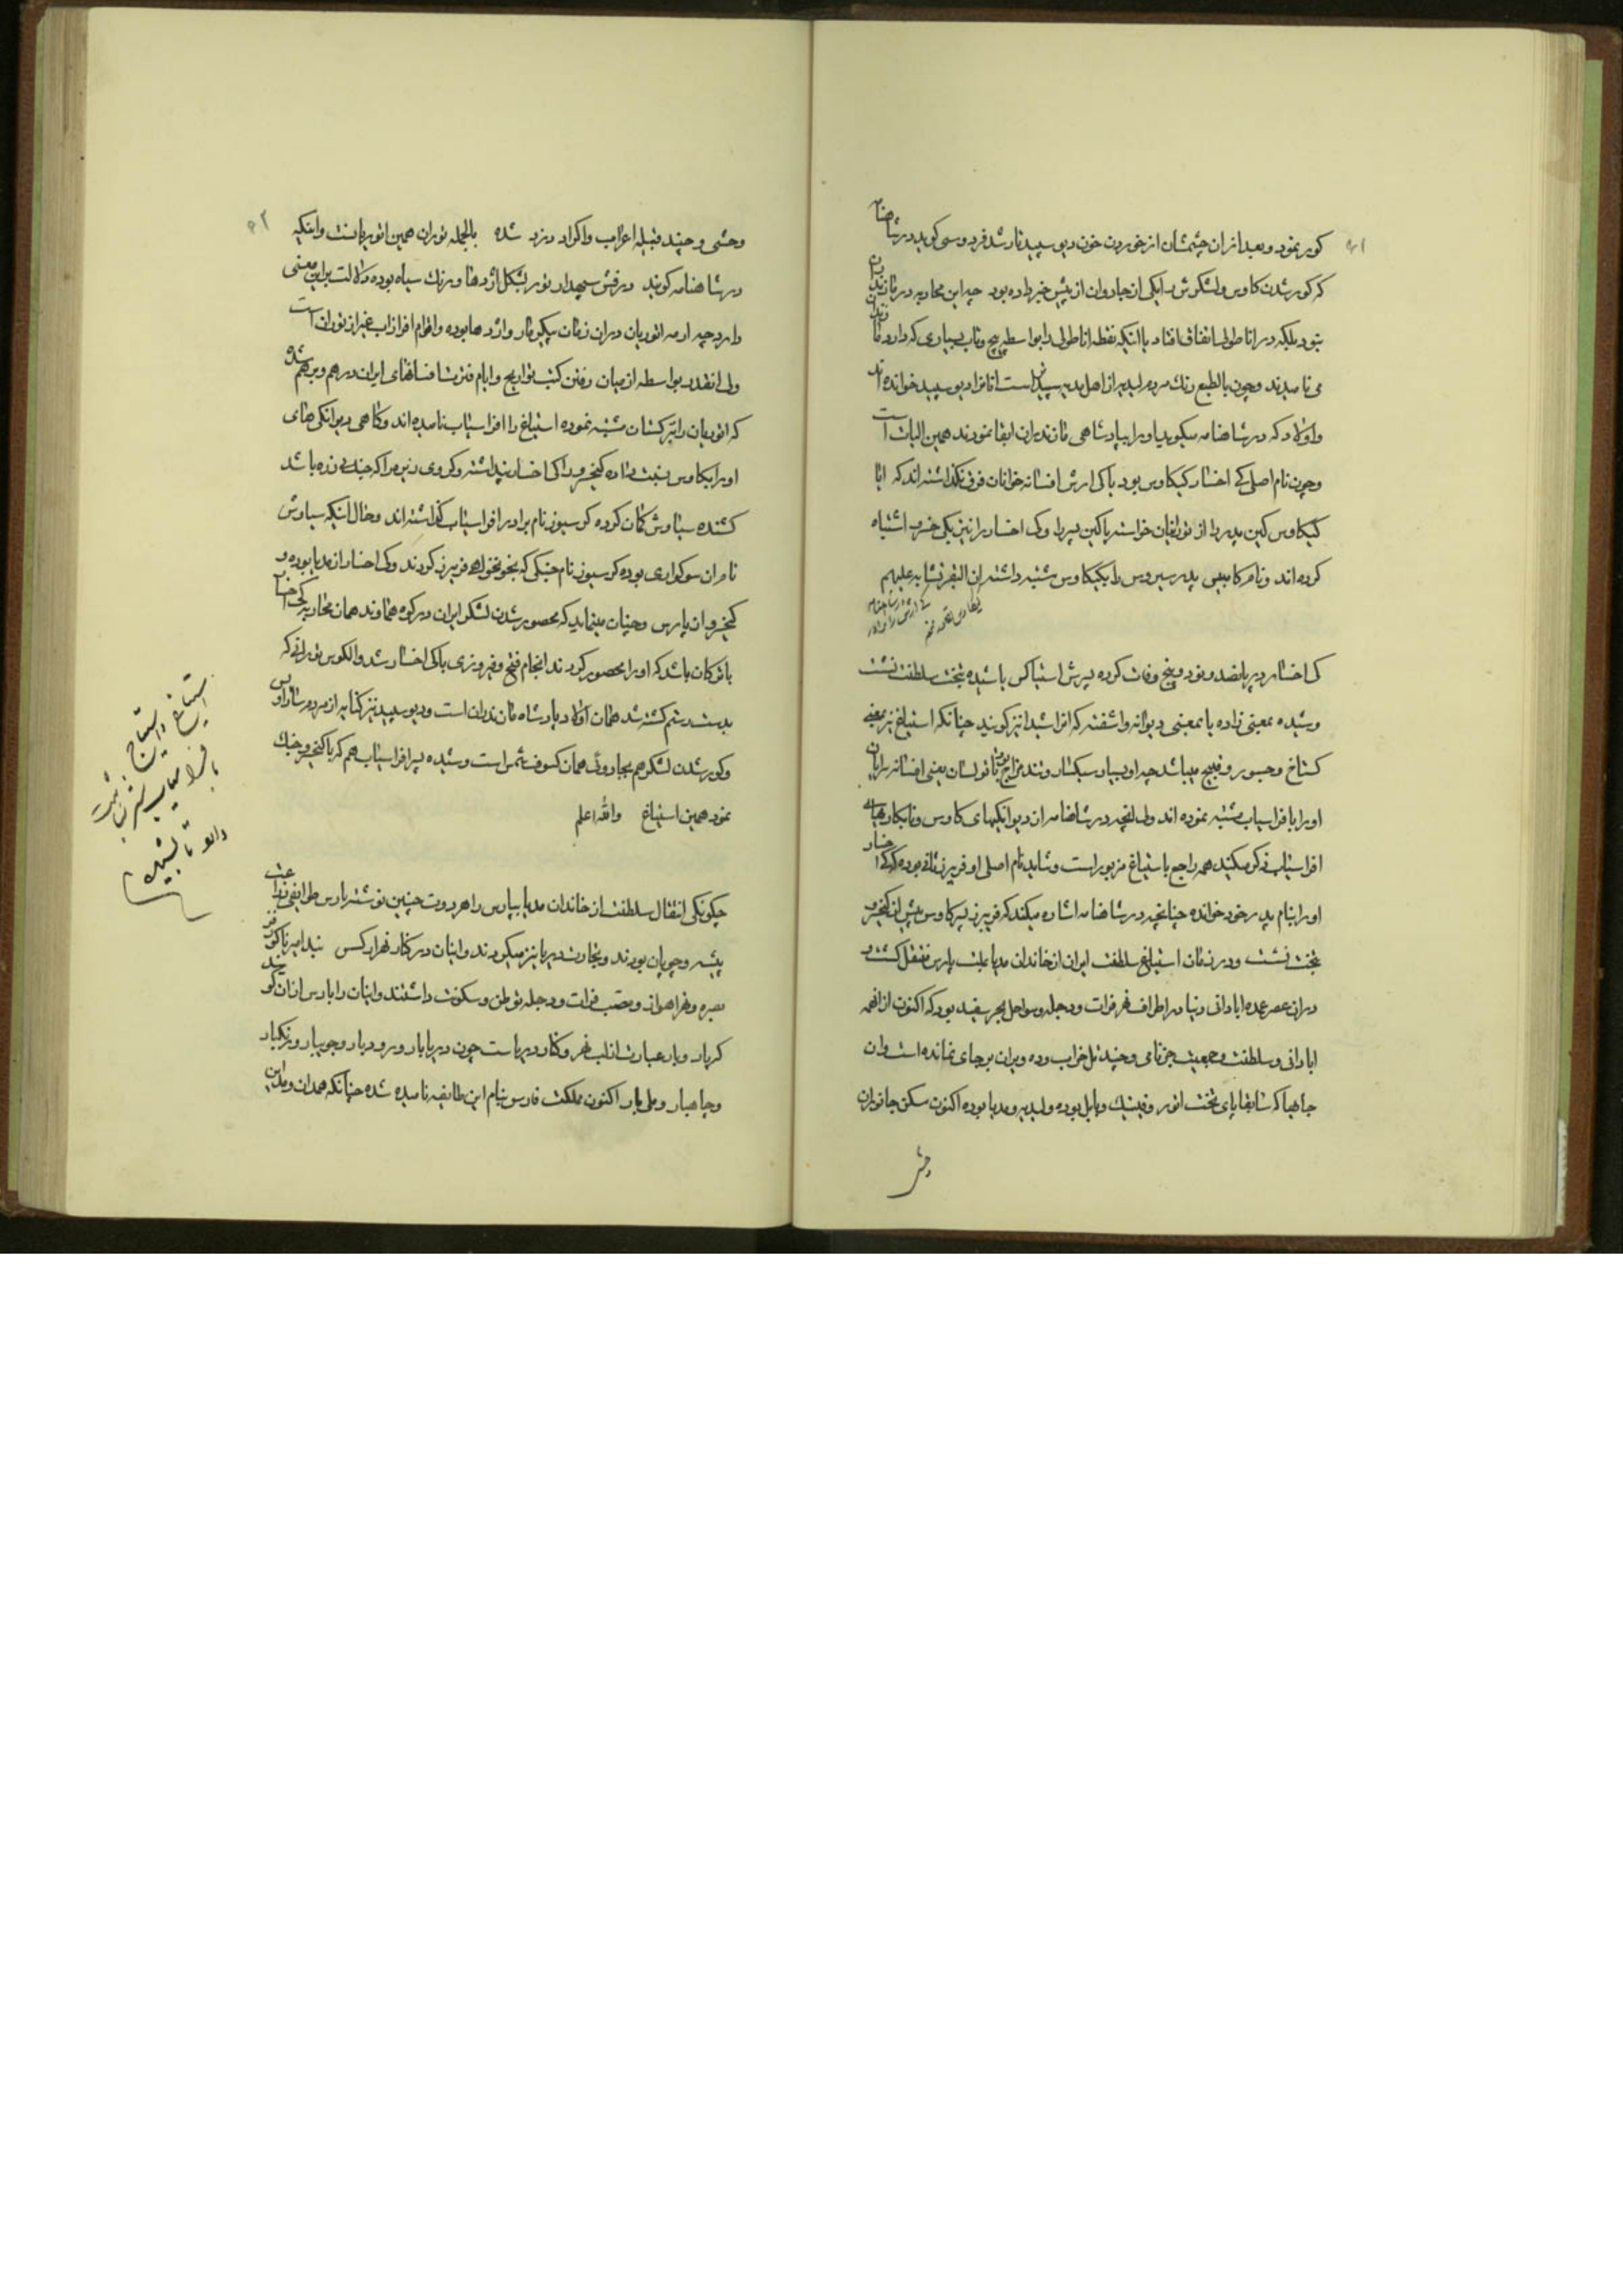 کور نمود و بعد از ان چشمشان از خوردن خون دیو سپید تار شد فردوسی کوید در شاهنامه
که کور شدن کاوس و لشکرش را یکی از جادوان از پیش خبر داده بود چه این محاربه در مازندران
نبود بلکه در اناطولی اتفاق افتاد با انکه نقطه اناطولی را بواسطه پیچ و تاب بسیاری که دارد مازندران
می نامیدند و چون بالطبع رنک مردم لیدیه از اهل مدیه سپیدتر است انانرا دیو سپید خوانده اند
و اولاد که در شاهنامه میکوید او را بپادشاهی مازندران ابقا نمودند همین الیات است
و چون نام اصلی کی اخسار کیکاوس بود با کی ارش افسانه خوانان فرق نکذاشته اند که ایا
کیکاوس کین پدر را از تورانیان خواسته یا کین پسر را و کی اخسار را نیز بکی خسرو اشتباه
کرده اند و نام کامبیس پدر سیروس را بکیکاوس مشتبه داشته ان البقر تشابه علیهم
کی اخسار در پانصد و نود و پنج وفات کرده پسرش استیاکس یا شیده بتخت سلطنت نشست
و شیده بمعنی زاده یا بمعنی دیوانه و اشفته که افراشیدا نیز کویند چنانکه استیاغ نیز بمعنی
کستاخ و جسور و قبیح میباشد چه او بسیار سبکسار و تند مزاج بوده اما تورانستان یعنی افسانه سرایان
او را با فراسیاب مشتبه نموده اند ولی انچه در شاهنامه از دیوانکیهای کاوس و نابکاریهای
افراسیاب ذکر میکنند همه راجع باستیاغ مزبور است و شاید نام اصلی او فریبرز ثانی بوده که کی اخسار
او را بنام پدر خود خوانده چنانچه در شاهنامه اشاره میکند که فریبرز پسر کاوس پیش از کیخسرو
بتخت نشست و در زمان استیاغ سلطنت ایران از خاندان مدیا بملت پارس منتقل کشت و
در ان عصر عمده ابادانی دنیا در اطراف نهر فرات و دجله و سواحل بحر سفید بود که اکنون از انهمه
ابادانی و سلطنت و جمعیت جز نامی و چند تل خراب و ده ویران برجای نمانده است و ان
جاهها که سابقا پای تخت اثور و فنیک و بابل بوده و لیدیه و مدیا بوده اکنون مسکن جانوران
وحشی
وحشی و چند قبیله اعراب و اکراد دزد شده بالجمله توران همین اثوریانست و اینکه
در شاهنامه کویند درفش سپهدار تور بشکل اژدها و برنک سیاه بوده دلالت براین معنی
دارد چه ارمه اثوریان در ان زمان پیکر مار و اژدها بوده و اقوام افراسیاب غیر از توران است
ولی انقدر بواسطه از میان رفتن کتب تواریخ و ایام فترت افسانهای ایران درهم و برهم شده
که اثوریان را بترکستان مشتبه نموده استیاغ را افراسیاب نامیده اند و کاهی دیوانکی های
او را بکاوس نسبت داده کیخسرو را کی اخسار پنداشته و کروی زره را که جنک زره باشد
کشنده سیاوش کمان کرده کرسیوز نام برادر افراسیاب کذاشته اند و حال انکه سیاوش
نام ان سوکواری بوده کرسیوز نام جنکی که بخونخواهی فریبرز کردند و کی اخسار از مدیا بوده و
کیخسرو از پارس و چنان مینماید که محصور شدن لشکر ایران در کوه هماوند همان محاربه کی اخسار
با ترکان باشد که او را محصور کردند انجام فتح و فیروزی با کی اخسار شد و الکوس تورانی که
بدست رستم کشته شد همان اولاد پادشاه مازندران است و دیو سپید نیز کنایه از مردم ساراوس
و کور شدن لشکر هم بجادوئی همان کسوف شمس است و شیده پسر افراسیاب هم که با کیخسرو جنک
نمود همین استیاغ والله اعلم
چکونکی انتقال سلطنت از خاندان مدیا بپارس را هردوت چنین نوشته پارس طوایفی زراعت
پیشه و چوپان بودند و تجارت دریا نیز میکردند و اینان در کنار نهر ارکس بندامیر تا کور فز
بصره و نهر اهواز و مصب فرات و دجله توطن و سکونت داشتند و اینان را پارس از ان کویند
که پار و بار عبارت از لب نهر و کنار دریاست چون دریابار و رودبار و جویبار و زنکبار
و چاهبار و ملیبار اکنون مملکت فارس بنام این طایفه نامیده شده چنانکه همدان و مداین